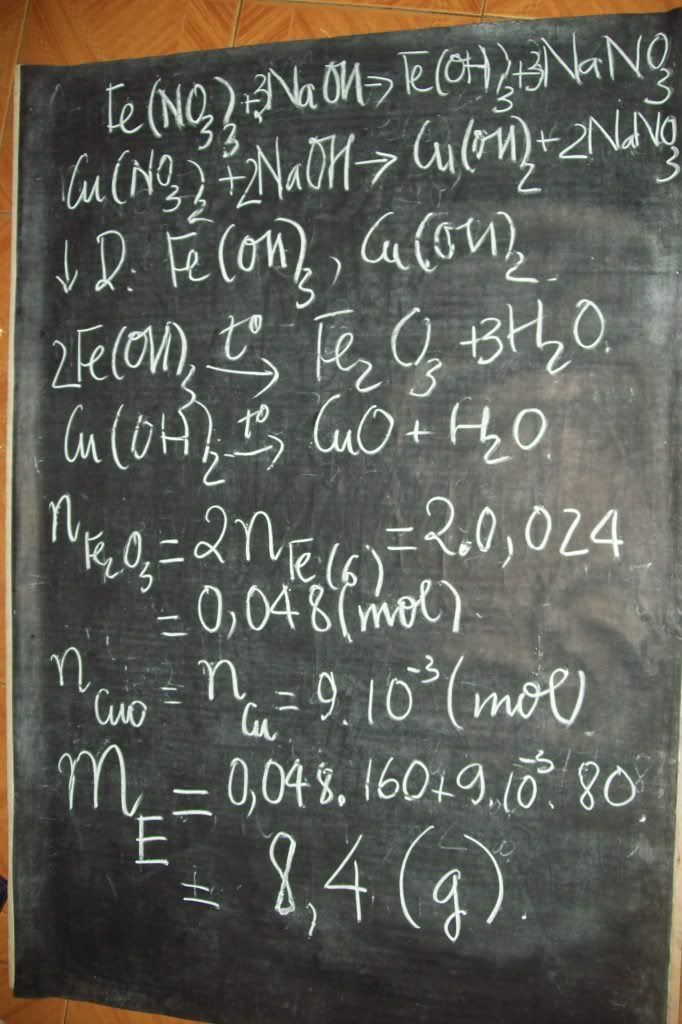 Fe(NO₃)₃+3NaOH→Fe(OH)₃+3NaNO₃
Cu(NO₃)₂+2NaOH→Cu(OH)₂+2NaNO₃
↓D: Fe(OH)₃, Cu(OH)₂
2Fe(OH)₃ t°→ Fe₂O₃+3H₂O.
Cu(OH)₂ t°→ CuO+H₂O
n Fe₂O₃ = 2n Fe(6) = 2.0,024
= 0,048(mol)
n CuO = n Cu = 9.10⁻³(mol)
m E = 0,048.160+9.10⁻³.80
= 8,4(g).